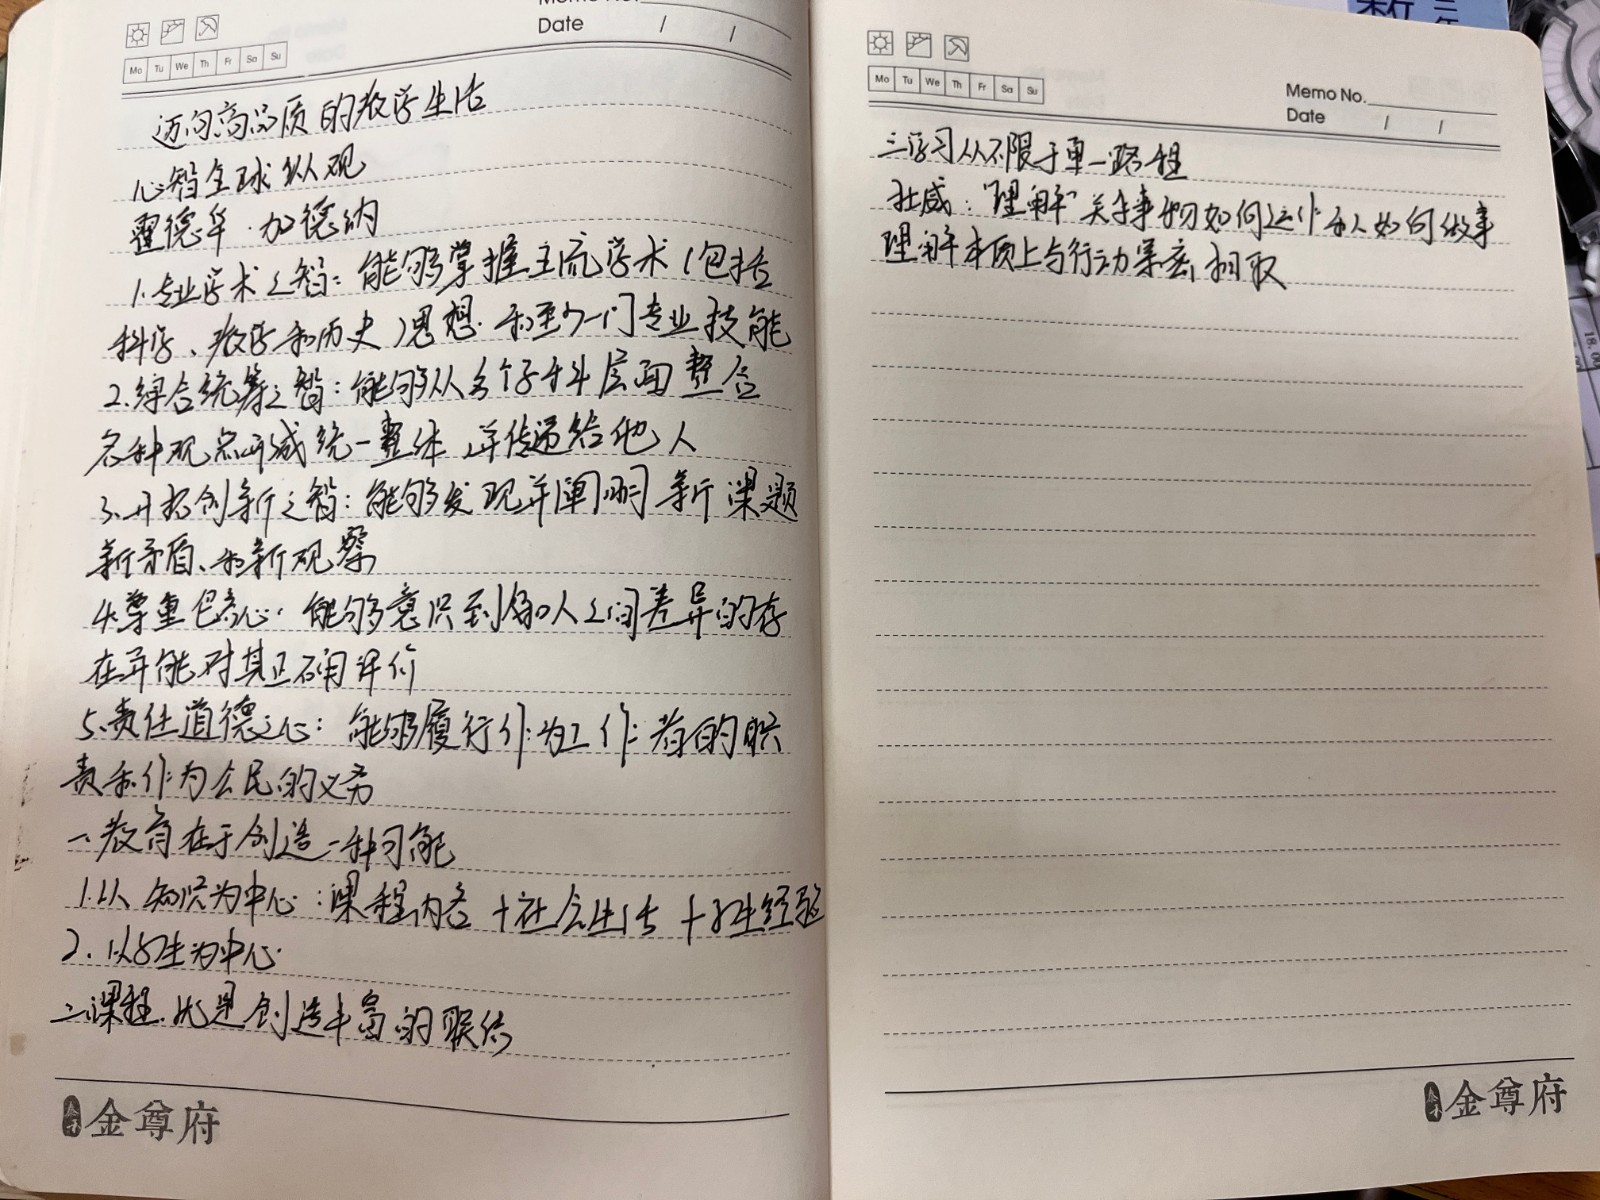 Memo No.
Date / /
Mo Tu We Th Fr Sa Su
迈向高品质的教学生活
心智全球纵观
霍德华·加德纳
1.专业学术之智：能够掌握主流学术（包括
科学、数学和历史）思想.和至少一门专业技能
2.综合统筹之智：能够从多个学科层面整合
各种观点 统一整体 并传递给他人
3.开拓创新之智：能够发现并阐明新课题
新矛盾、和新观察
4.尊重包容心：能够意识到 人之间差异的存
在并能对其正确评价
5.责任道德之心：能够履行作为工作者的职
责和作为公民的义务
一、教育在于创造一种可能
1.以知识为中心：课程内容+社会生活+学生经验
2.以学生为中心
二课程.就是创造丰富的联结
金尊府
Memo No.
Date / /
Mo Tu We Th Fr Sa Su
三学习从不限于单一路程
杜威：“理解”关于事物如何运作和人如何做事
理解本质上与行动紧密相
金尊府